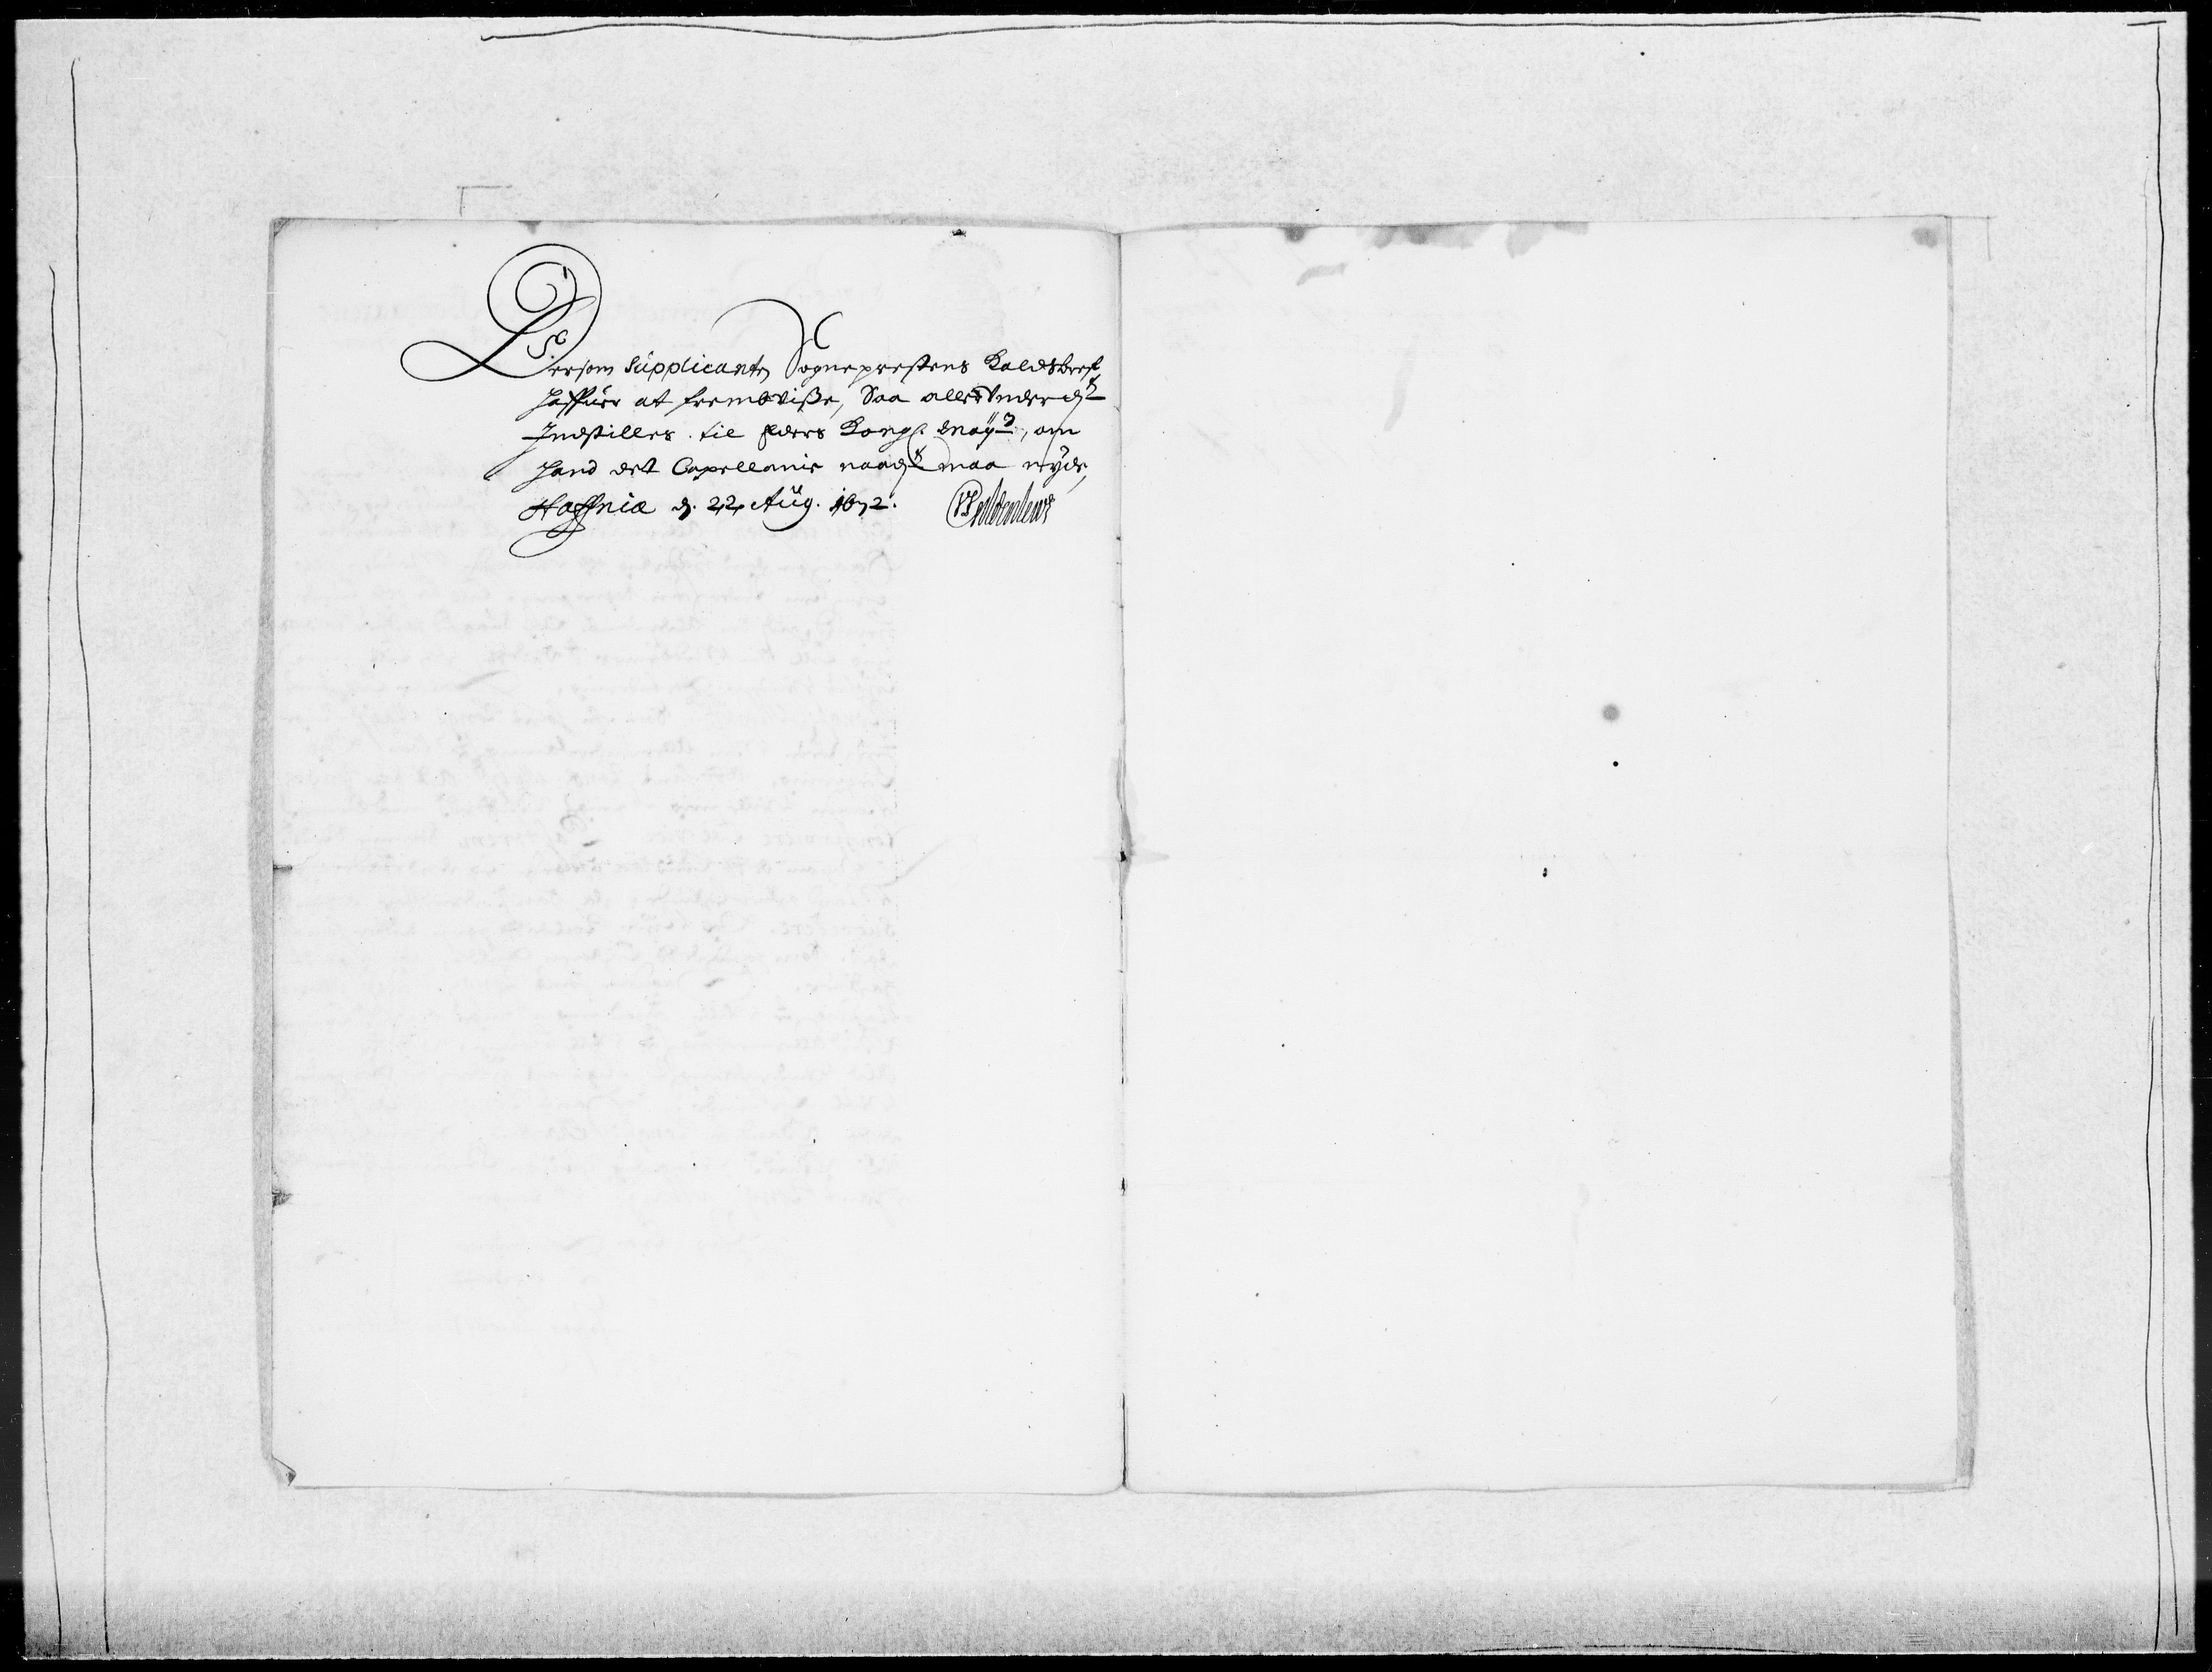 Dersom Supplicanten Sogneprestens Kaldsbref
haffuer at fremviße, Saa allerunderdst
Indstilles til Eders Kongl. May.ts, om
hand det Capellanie naadst maa nyde,
Haffniæ d. 22 Aug. 1672.